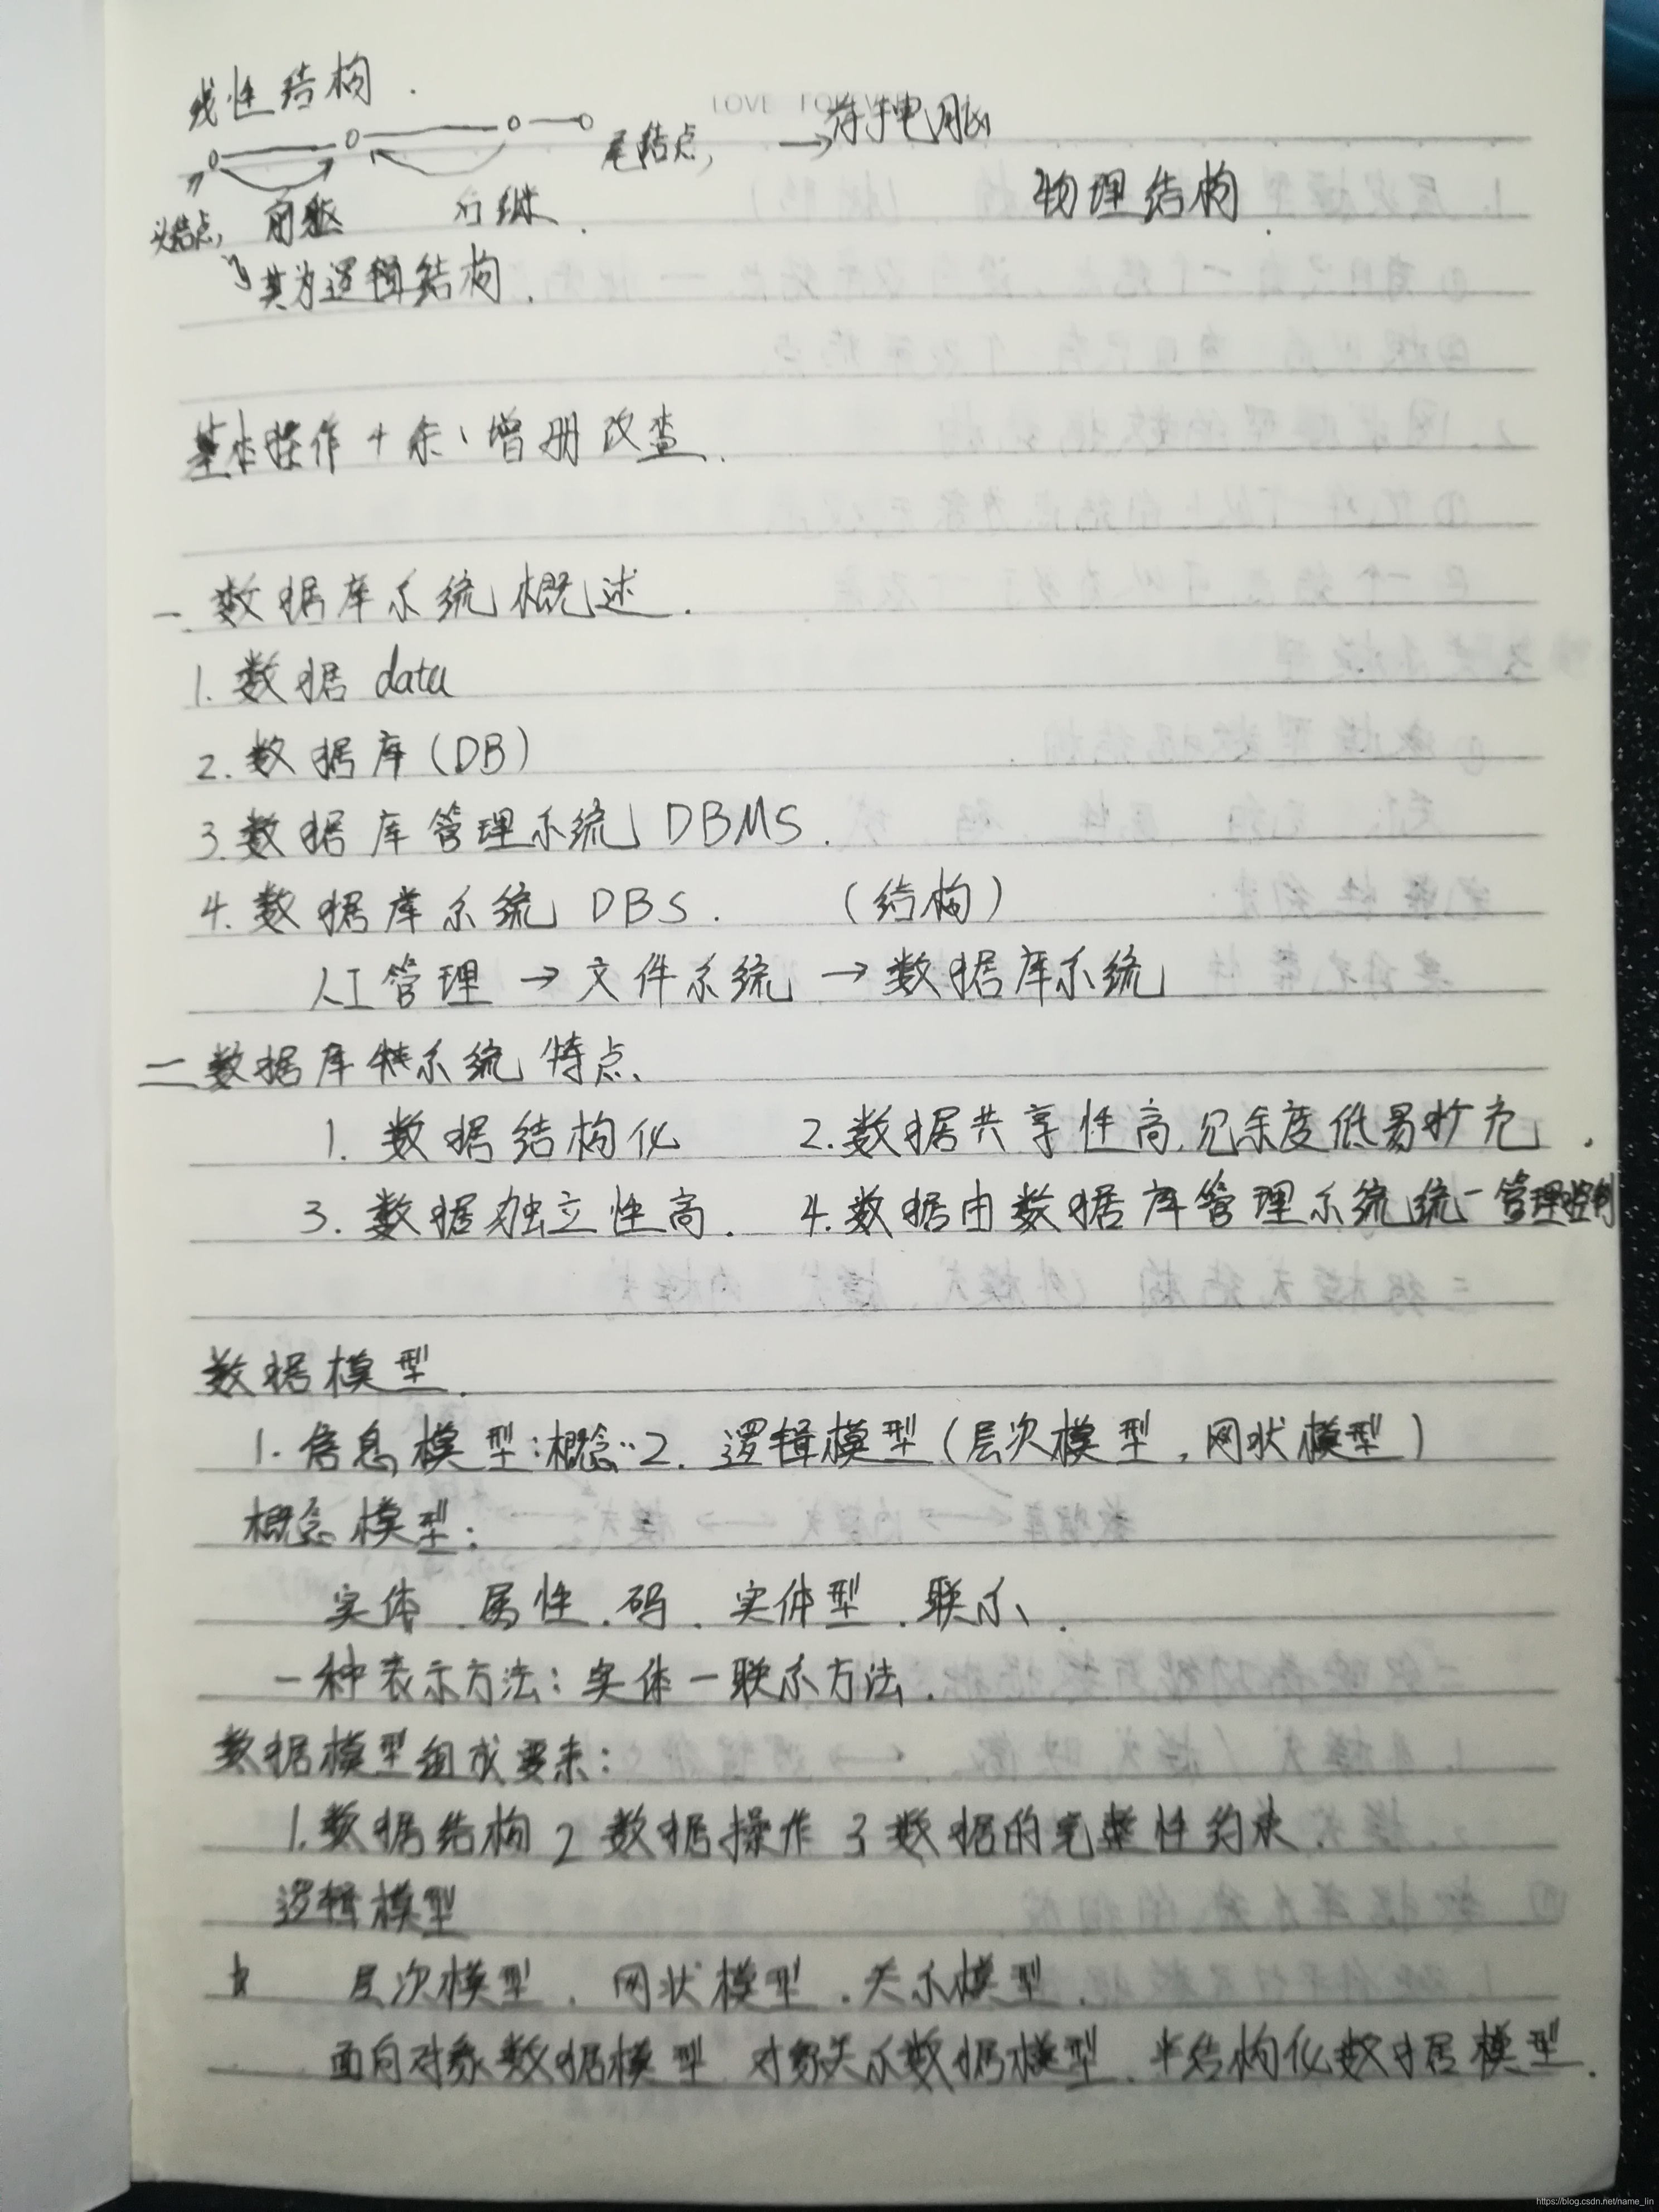 线性结构.
LOVE FOREVER
尾结点, → 存于电脑
物理结构.
头结点, 前驱 后继.
其为逻辑结构.
基本操作 + 余、增册改查.
一. 数据库系统概述.
1. 数据 data
2. 数据库(DB)
3. 数据库管理系统 DBMS.
4. 数据库系统 DBS. (结构)
人工管理 → 文件系统 → 数据库系统
二 数据库系统特点、
1. 数据结构化 2. 数据共享性高, 冗余度低易扩充.
3. 数据独立性高. 4. 数据由数据库管理系统统一管理控制
数据模型.
1. 信息模型:概念.. 2. 逻辑模型(层次模型, 网状模型)
概念模型:
实体、属性、码、实体型、联系、.
一种表示方法:实体一联系方法.
数据模型组成要素:
1. 数据结构 2 数据操作 3 数据的完整性约束.
逻辑模型
层次模型、网状模型、关系模型.
面向对象数据模型、对象关系数据模型、半结构化数据模型.
https://blog.csdn.net/name_lin